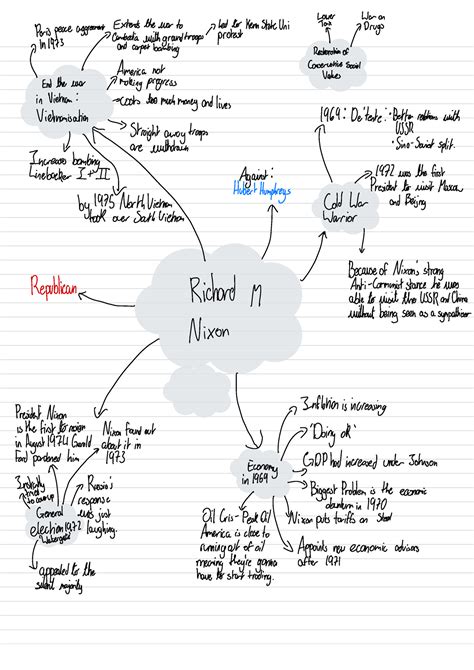 Paris peace aggreement
In 1973
Extends the war to
Cambodia with ground troops
and carpet bombing
Led to Kern State Uni
protest
Lower
Tax
War on
Drugs
Restoration of
Conservative Social
Values
End the war
in Vietnam:
Vietnamisation
America not
making progress
costs too much money and lives
Straight away troops
are withdrawn
Increased bombing
Linebacker I + II
by 1975 North Vietnam
took over South Vietnam
1969: De'tente:
Better relations with
USSR
Sino-Soviet split.
1972 was the first
President to visit Moscow
and Beijing
Cold War
Warrior
Because of Nixon's strong
Anti-Communist stance he was
able to visit the USSR and China
without being seen as a sympathiser
Against:
Hubert Humphreys
Republican
Richard M
Nixon
President Nixon
is the first to resign
in August 1974 Gerald
Ford pardoned him
Nixon found out
about it in
1973
Initially
tried
to cover up
Russia's
response
was just
laughing.
General
election 1972
Watergate
appealed to the
silent majority
Economy
in 1969
Inflation is increasing
'Doing ok'
GDP had increased under Johnson
Biggest Problem is the economic
downturn in 1970
Nixon puts tariffs on Steel
Appoints new economic advisors
after 1971
Oil Cris- Peak Oil
America is close to
running out of oil
meaning they're gonna
have to start trading.